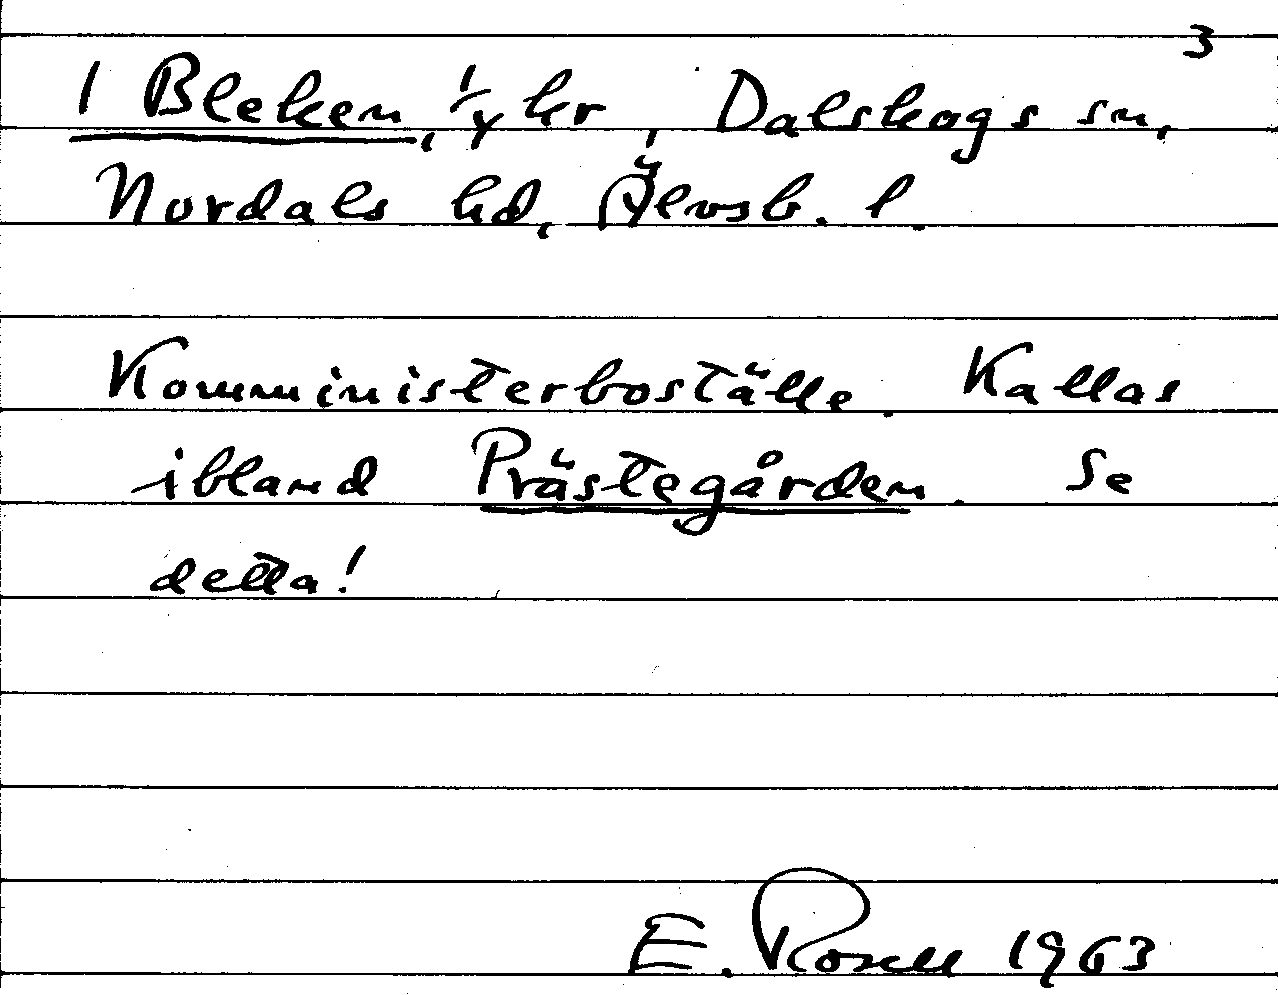 3
1 Bleken, 1/4 kr, Dalskogs sn,
Nordals hd, Älvsb. l.
Kommiinisterboställe. Kallas
ibland Prästegården. Se
detta!
E. Rosell 1963